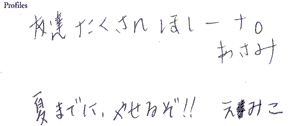 Profiles
友達たくさんほしーナ。
あさみ
夏までに、やせるぞ!! えみこ